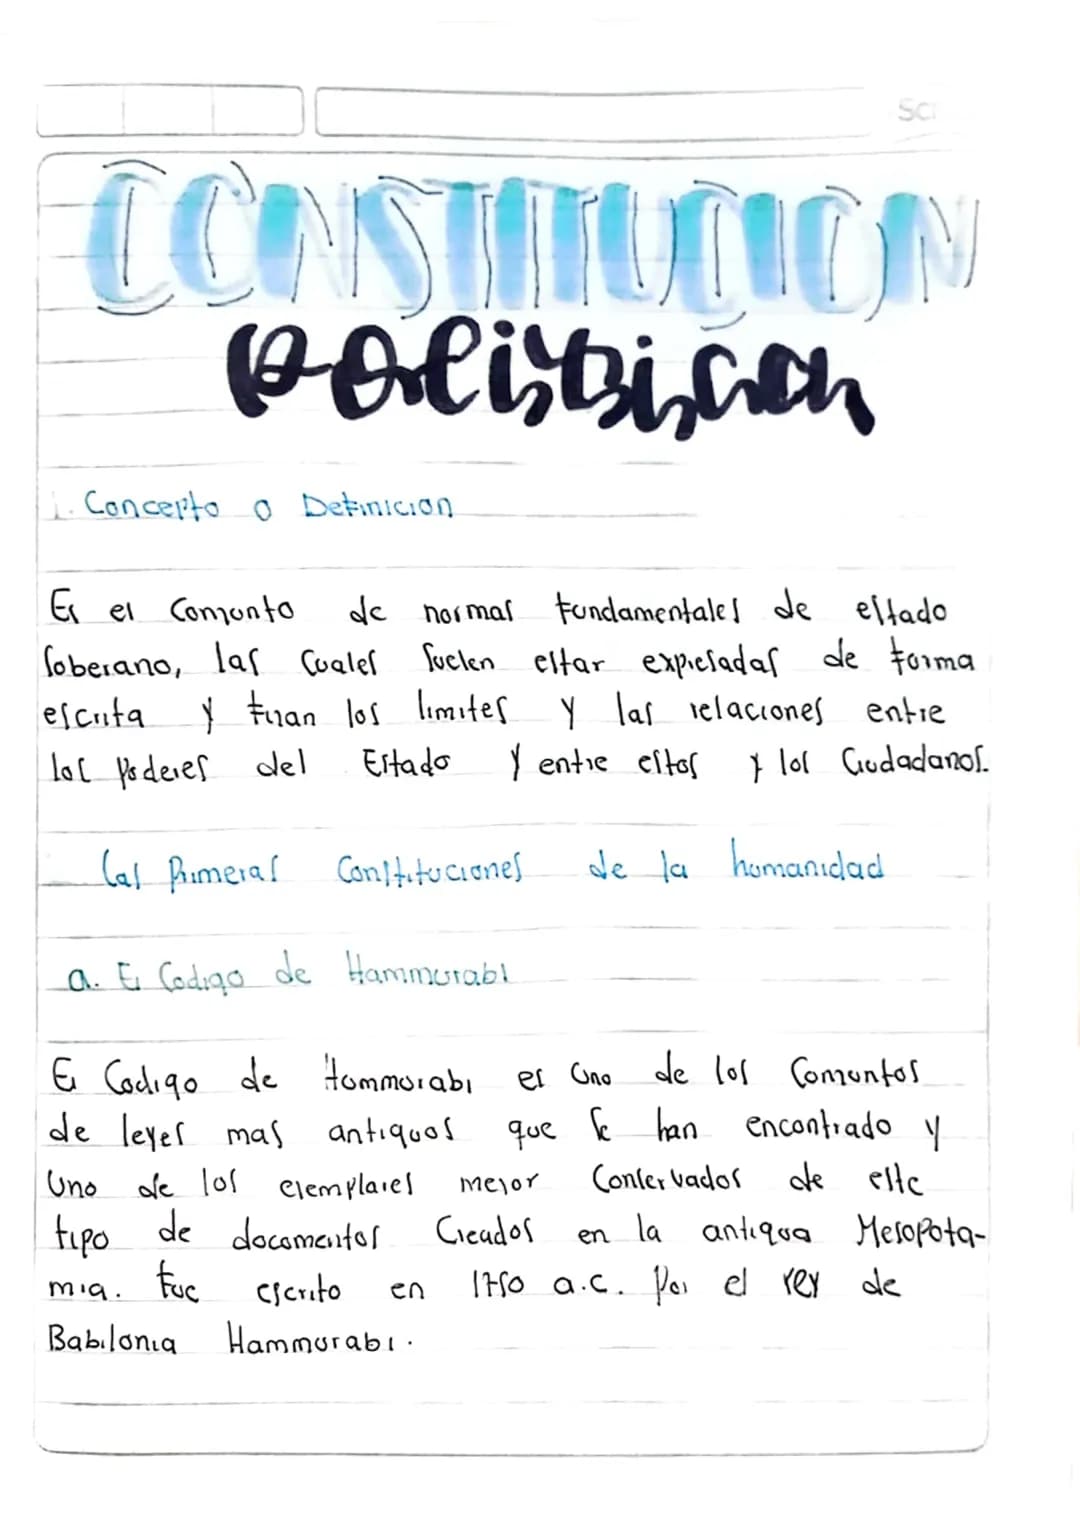 Sc
CONSTITUCION
Politica
1. Concepto o Definicion
Es el Conjunto de normas fundamentales de estado
soberano, las cuales suelen estar expresadas de forma
escrita y fijan los limites y las relaciones entre
los Poderes del Estado y entre estos y los Ciudadanos.
Las Primeras Constituciones de la humanidad
a. El Codigo de Hammurabi
El Codigo de Hammurabi es uno de los Conjuntos
de leyes mas antiguos que se han encontrado y
Uno de los ejemplares mejor Conservados de este
tipo de documentos Creados en la antigua Mesopota-
mia. Fue escrito en 1750 a.c. Por el rey de
Babilonia Hammurabi.